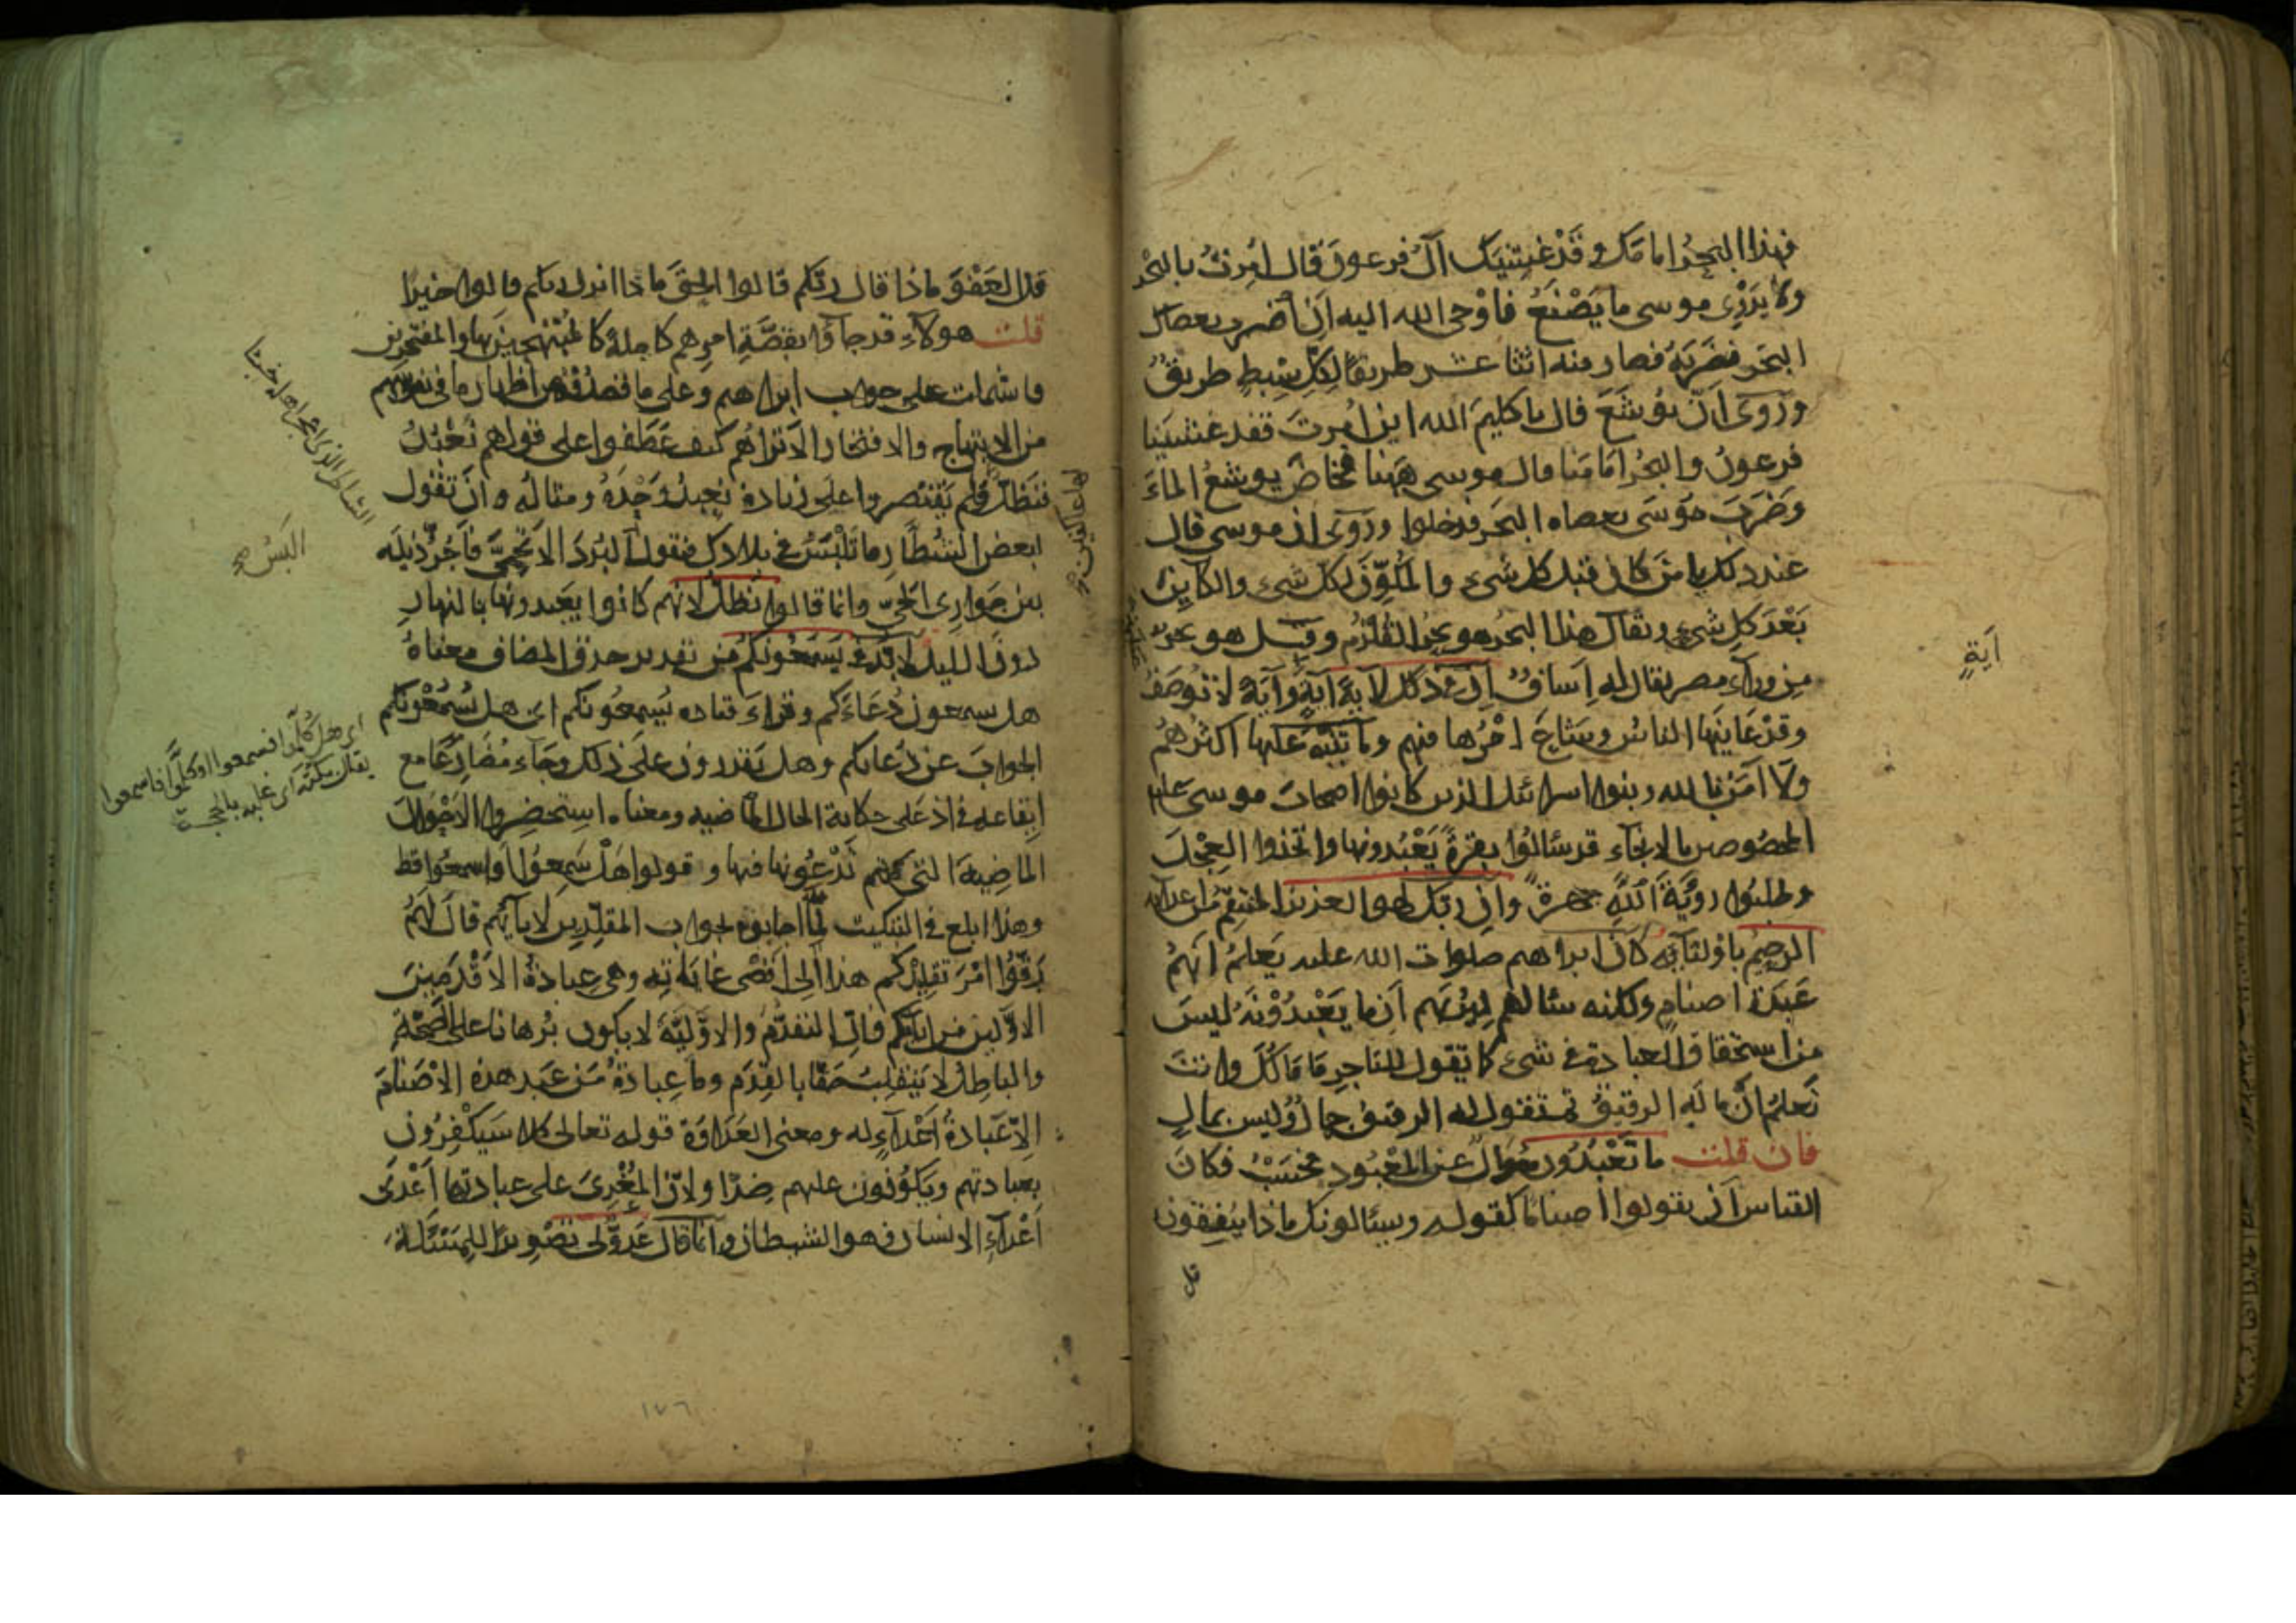 فهذا البحر امامك وقد غشيتك آل فرعون قال امرت بالبحر
ولا يدرى موسى ما يصنع فاوحى الله اليه ان اضرب بعصاك
البحر فضربه فصار منه اثنا عشر طريقا لكل سبط طريق
وروى ان يوشع قال يا كليم الله اين امرت فقد غشينا
فرعون والبحر امامنا قال موسى ههنا فخاض يوشع الماء
وضرب موسى بعصاه البحر فدخلوا وروى ان موسى قال
عند ذلك يا من كان قبل كل شىء والمكون لكل شىء والكاين
بعد كل شىء ويقال هذا البحر هو بحر القلزم وقيل هو بحر
من وراء مصر يقال له اساف ان فى ذلك لآية اية وآية لا توصف
وقد عاينها الناس وشاع امرها فيهم وما تنبه عليها اكثرهم
ولا آمن بالله وبنوا اسرائل الذين كانوا اصحاب موسى عليه
المخصوصين بالانجاء قد سئالوا بقرة يعبدونها واتخذوا العجل
وطلبوا روية الله جهرة وان ربك لهو العزيز المنتقم من اعدائه
الرحيم باوليائه كان ابراهم صلوات الله عليه يعلم انهم
عبدة اصنام ولكنه سئالهم ليريهم ان ما يعبدونه ليس
من استحقاق العبادة فى شىء كما تقول للتاجر ما مالك وانت
تعلم ان ماله الرقيق ثم تقول له الرقيق جمال وليس بمال
فان قلت ما تعبدون سوال عن المعبود فحسب فكان
القياس ان يقولوا اصناما كقوله ويسئالونك ماذا ينفقون
قل
اية
قل العفو ماذا قال ربكم قالوا الحق ماذا انزل ربكم قالوا خيرا
قلت هولاء قد جاؤا بقصة امرهم كاملة كالمبتهجين بها والمفتخرين
فاشتملت على جواب ابراهم وعلى ما قصدوه من اظهار ما فى نفوسهم
من الابتهاج والافتخار الا تراهم كيف عطفوا على قولهم نعبد
فنظل ولم يقتصروا على زيادة نعبد وحده ومثاله وان تقول
لبعض الشطار ما تلبس فى بلادك فيقول البرد الاتحمى فاجر ذيله
بين جوارى الحى وانما قالوا نظل لانهم كانوا يعبدونها بالنهار
دون الليل لا بد فى يسمعونكم من تقدير حذف المضاف معناه
هل يسمعون دعاءكم وقراء قتاده يسمعونكم اى هل يسمعونكم
الجواب عن دعائكم وهل يقدرون على ذلك وجاء مضارعا مع
ايقاعه فى اذ على حكاية الحال الماضيه ومعناه استحضروا الاحوال
الماضية التى كنتم تدعونها فيها وقولوا هل سمعوا او اسمعوا قط
وهذا ابلغ فى التبكيت لما اجابوه بجواب المقلدين لابائهم قال لهم
رقوا امر تقليدكم هذا الى اقصى غاياته وهى عبادة الاقدمين
الاولين من ابائكم فان التقدم والاولية لا يكون برهانا على الصحة
والباطل لا ينقلب حقا بالقدم وما عبادة من عبد هذه الاصنام
الا عبادة اعداء له ومعنى العداوة قوله تعالى كلا سيكفرون
بعبادتهم ويكونون عليهم ضدا ولان المغرى على عبادتها اعدى
اعداء الانسان وهو الشيطان وانما قال عدو لى تصويرا للمسئلة
الشاطر الذى اعجز اهله خبثا
البس
اى هل كلموا فسمعوا او كلموا فاسمعوا
يقال بكته اى غلبه بالحجة
١٧٦